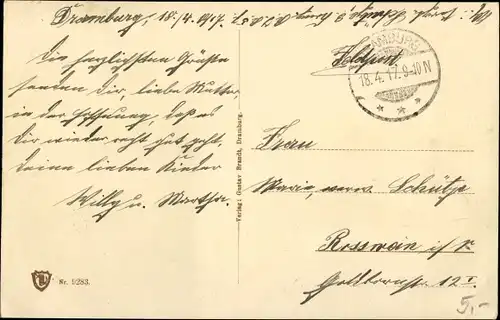 Dramburg, 18/4. 1917.
Feldpost
DRAMBURG
18.4.17.9-10 N
Die herzlichsten Grüße
senden Dir, liebe Mutter,
in der Hoffnung, daß es
Dir wieder recht gut geht,
Deine lieben Kinder
Willy u. Martha.
Verlag: Gustav Brandt, Dramburg.
Frau
Marie, verw. Schütze
Rosswein i/S.
12 I
Nr. 9283.
5,-